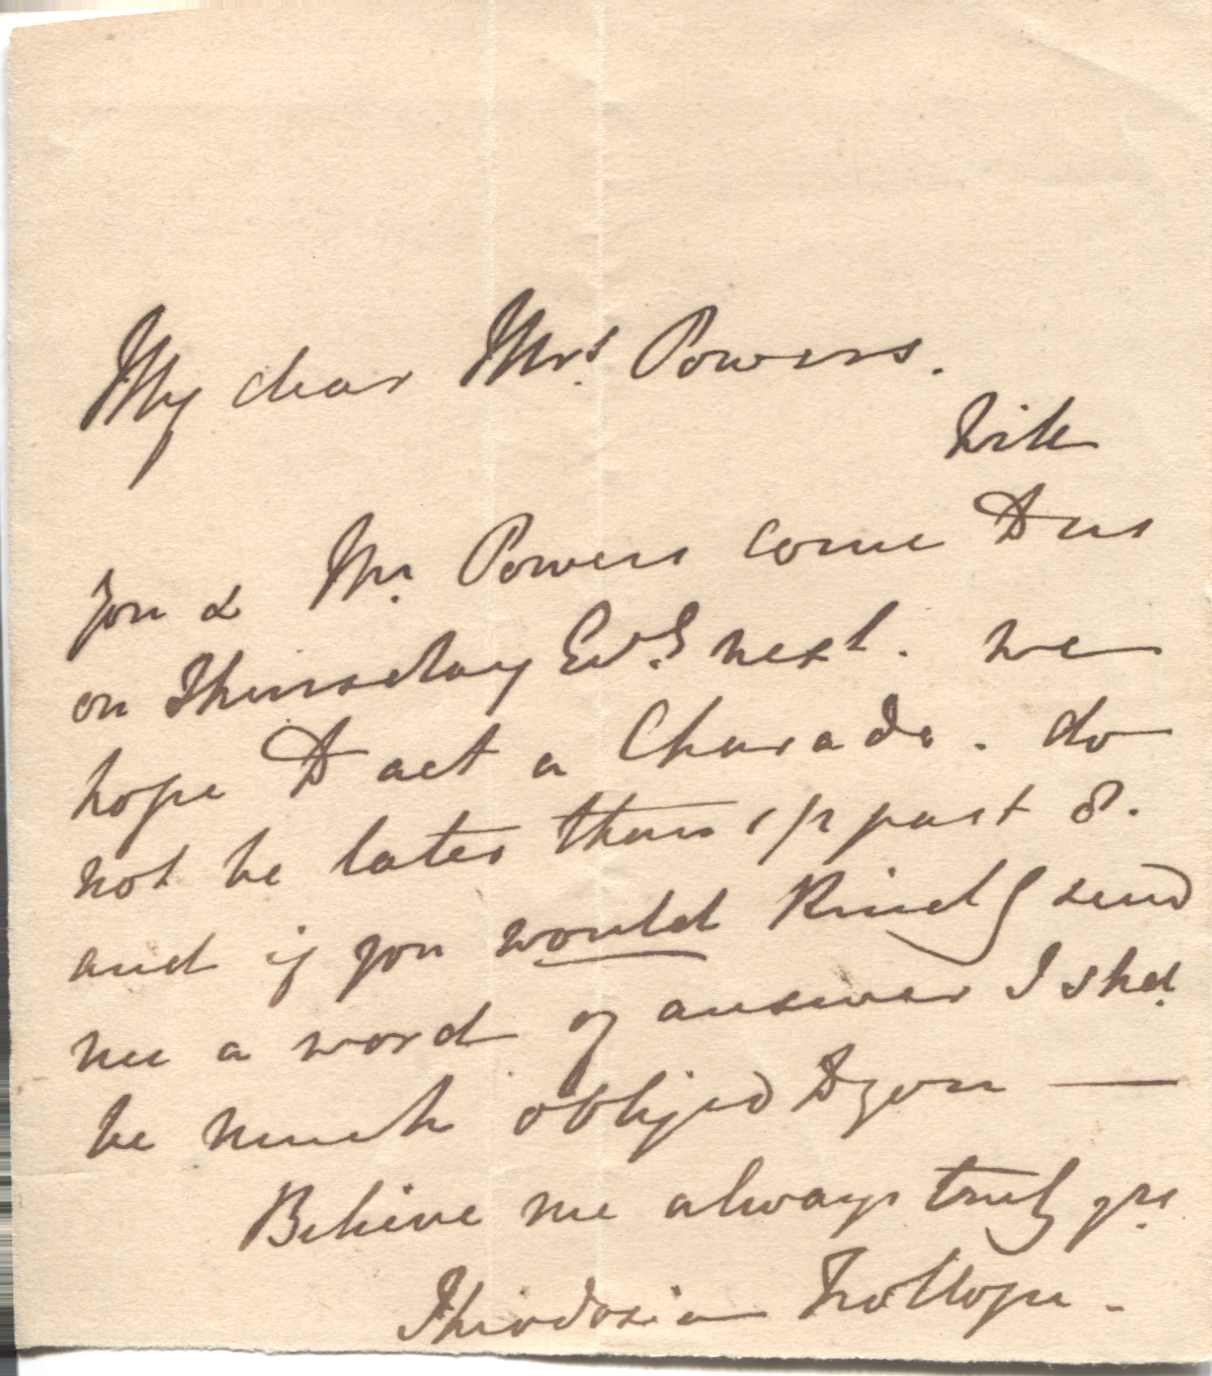 My dear Mrs. Powers.
Will
you & Mr. Powers come to us
on Thursday Evg. next. we
hope to act a Charade. do
not be later than 1/2 past 8.
and if you would kindly send
me a word of answer I shd.
be much obliged to you —
Believe me always truly yrs.
Theodosia Trollope.